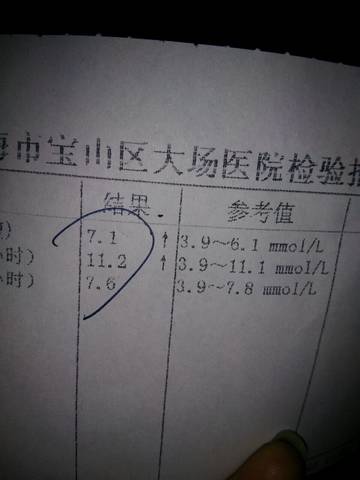 海市宝山区大场医院检验报
结果 参考值
) 7.1 ↑ 3.9~6.1 mmol/L
小时) 11.2 ↑ 3.9~11.1 mmol/L
小时) 7.6 3.9~7.8 mmol/L